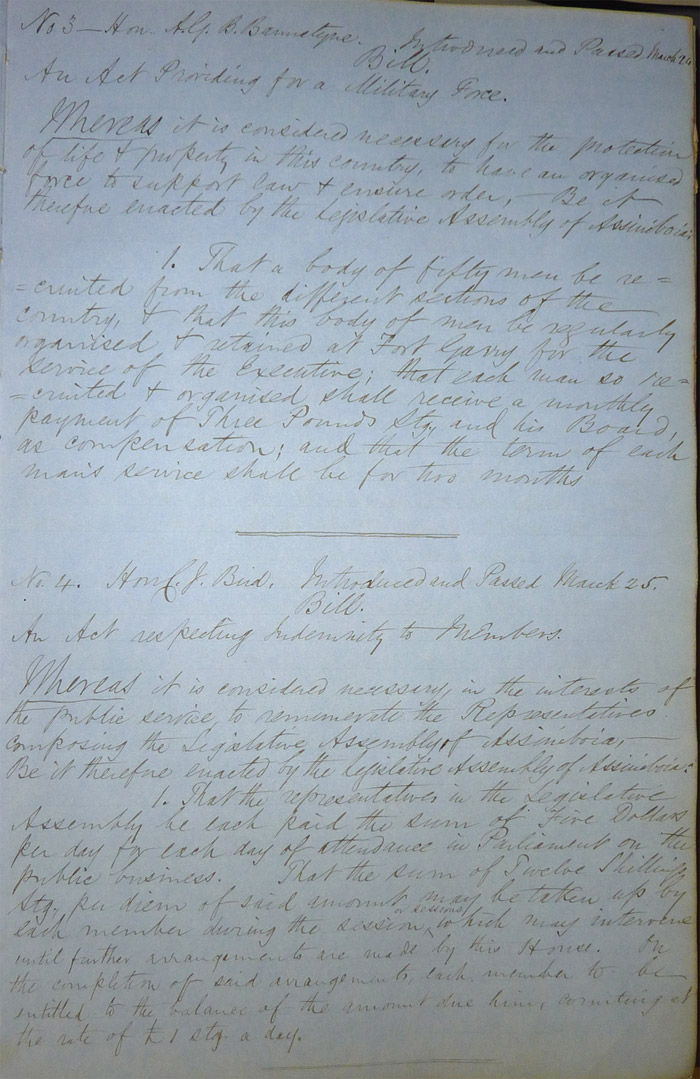 No 3 — Hon. A.G. B. Bannatyne. Introduced and Passed March 24
Bill.
An Act Providing for a Military Force.
Whereas it is considered necessary for the protection
of life & property in this country, to have an organised
force to support law & ensure order, — Be it
therefore enacted by the Legislative Assembly of Assiniboia:
1. That a body of fifty men be re=
=cruited from the different sections of the
country, & that this body of men be regularly
organised & retained at Fort Garry for the
service of the Executive; that each man so re=
=cruited & organised shall receive a monthly
payment of Three Pounds Stg, and his Board,
as compensation; and that the term of each
man's service shall be for two months
No. 4. Hon C. J. Bird. Introduced and Passed March 25.
Bill.
An Act respecting Indemnity to Members.
Whereas it is considered necessary, in the interests of
the public service, to remunerate the Representatives
composing the Legislative Assembly of Assiniboia, —
Be it therefore enacted by the Legislative Assembly of Assiniboia:
1. That the representatives in the Legislative
Assembly be each paid the sum of Five Dollars
per day for each day of attendance in Parliament on the
public business. That the sum of Twelve Shillings
Stg. per diem of said amount may be taken up by
each member during the session, or sessions, which may intervene
until further arrangements are made by this House. On
the completion of said arrangements, each member to be
entitled to the balance of the amount due him, counting at
the rate of £1 stg a day.